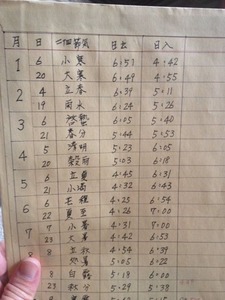 月 日 二四節気 日出 日入
1 6 小寒 6:51 4:42
20 大寒 6:49 4:55
2 4 立春 6:39 5:11
19 雨水 6:24 5:26
3 6 啓蟄 6:05 5:40
21 春分 5:44 5:53
4 5 清明 5:23 6:05
20 穀雨 5:03 6:18
5 6 立夏 4:45 6:31
21 小満 4:32 6:43
6 6 芒種 4:25 6:54
22 夏至 4:26 7:00
7 7 小暑 4:31 7:00
23 大暑 4:42 6:53
8 8 立秋 4:54 6:39
処暑 5:05 6:22
8 白露 5:18 6:00
23 秋分 5:29 5:38